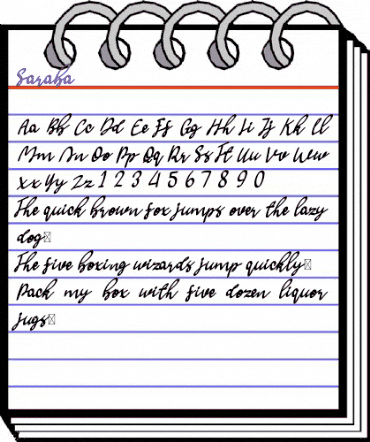 Saraba
Aa Bb Cc Dd Ee Ff Gg Hh Ii Jj Kk Ll
Mm Nn Oo Pp Qq Rr Ss Tt Uu Vv Ww
Xx Yy Zz 1 2 3 4 5 6 7 8 9 0
The quick brown fox jumps over the lazy
dog□
The five boxing wizards jump quickly□
Pack my box with five dozen liquor
jugs□